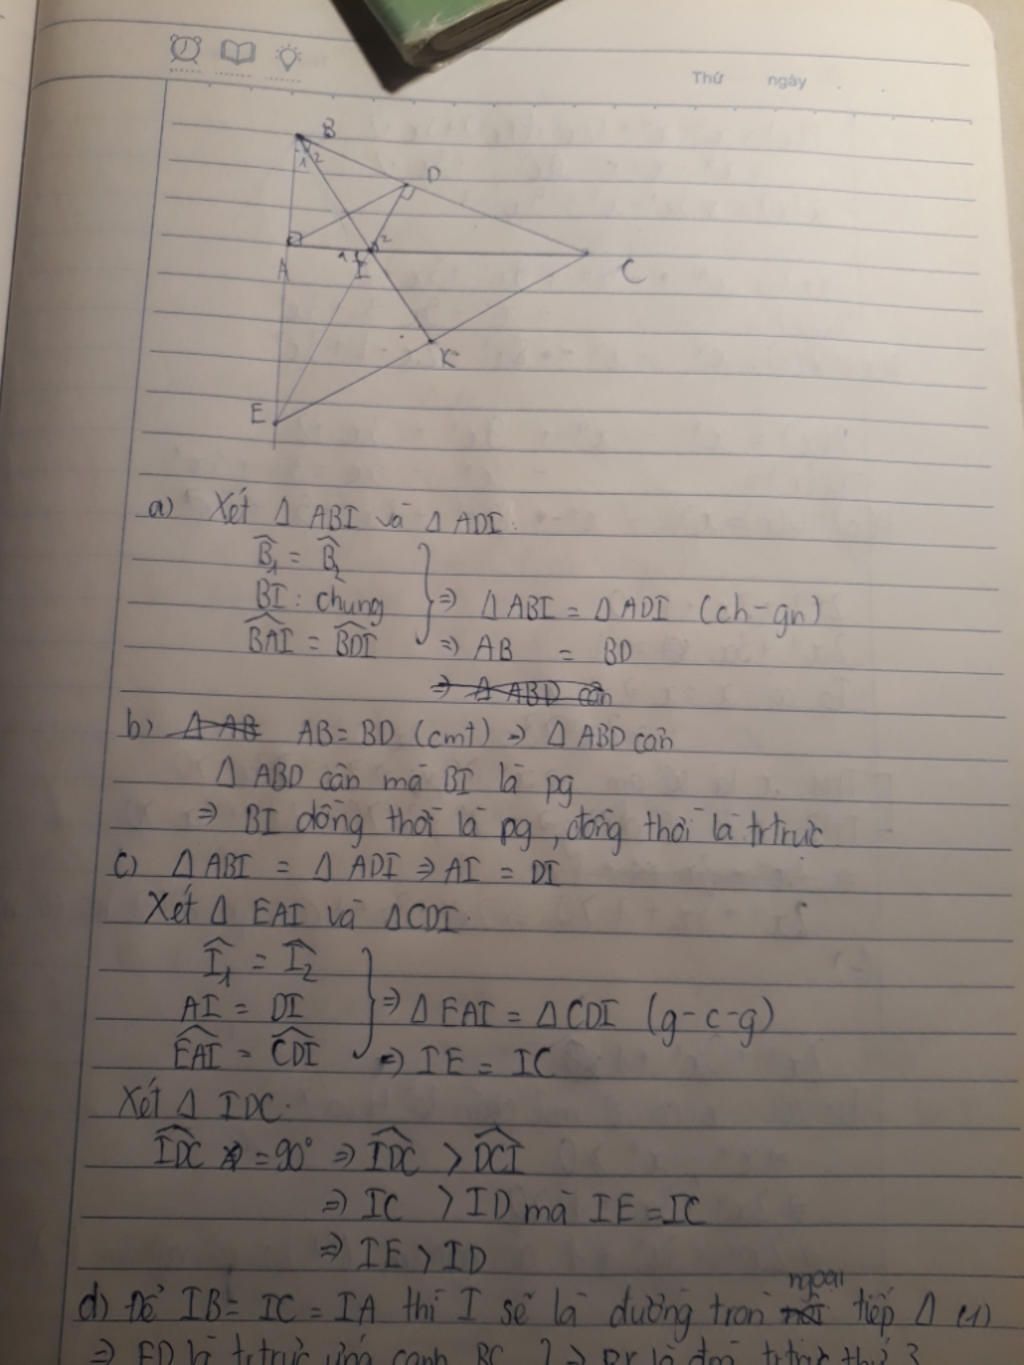 Thứ ngày
B
1 2
D
A
1 I 2
C
K
E
a) Xét Δ ABI và Δ ADI:
B̂₁ = B̂₂
BI : chung
⇒ Δ ABI = Δ ADI (ch-gn)
BAI = BDI
⇒ AB = BD
⇒ Δ ABD cân
b) Δ AB AB = BD (cmt) ⇒ Δ ABD cân
Δ ABD cân mà BI là pg
⇒ BI đồng thời là pg, đồng thời là tr trực
c) Δ ABI = Δ ADI ⇒ AI = DI
Xét Δ EAI và Δ CDI.
Î₁ = Î₂
AI = DI
⇒ Δ EAI = Δ CDI (g-c-g)
EAI = CDI
⇒ IE = IC
Xét Δ IDC.
IDC = 90° ⇒ IDC > DCI
⇒ IC > ID mà IE = IC
⇒ IE > ID
ngoại
d) Để IB = IC = IA thì I sẽ là đường tròn nội tiếp Δ (1)
⇒ ED là tr trực ứng cạnh BC